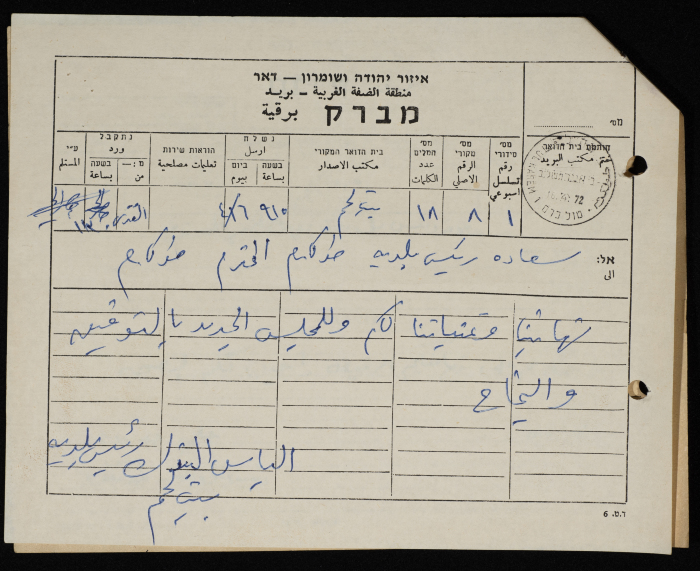 איזור יהודה ושומרון — דאר
منطقة الضفة الغربية - بريد
מברק برقية
מס׳
חותמת בית הדואר
ختم مكتب البريد
מס׳ סידורי
رقم تسلسل اسبوعي
מס׳ מקורי
الرقم الاصلي
מס׳ המלים
عدد الكلمات
בית הדואר המקורי
مكتب الاصدار
נשלח
ارسل
בשעה بساعة
ביום بيوم
הוראות שירות
تعليمات مصلحية
נתקבל
ورد
מ: — من
בשעה بساعة
ע״י
المستلم
١
٨
١٨
بيت لحم
٩١٥
القدس
72
אל: سعادة رئيس بلدية طولكرم المحترم طولكرم
الى
تهانينا وتمنياتنا لكم وللمجلس الجديد بالتوفيق
والنجاح
الياس البندك رئيس بلدية
بيت لحم
ד.ט. 6